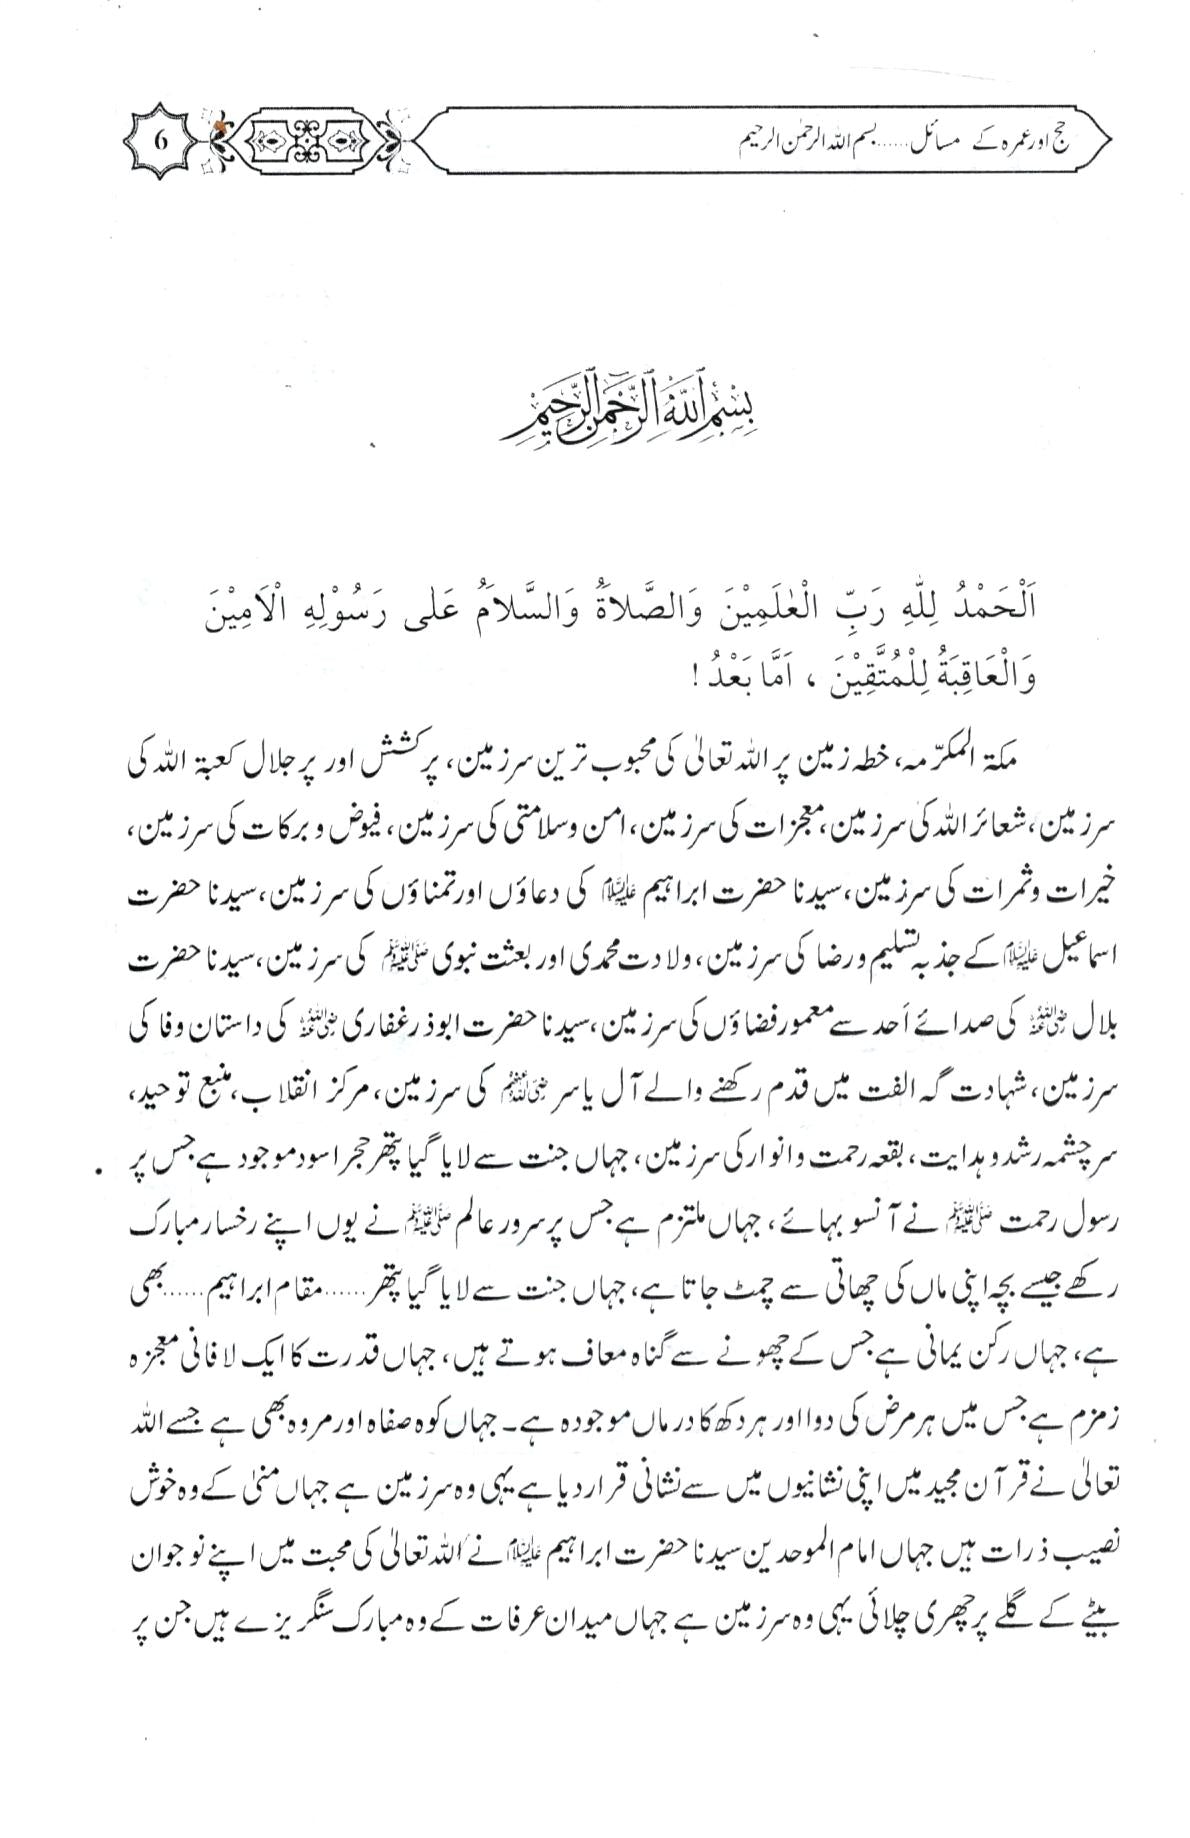 حج اور عمرہ کے مسائل......بسم اللہ الرحمٰن الرحیم
6
بِسْمِ ٱللَّهِ ٱلرَّحْمَٰنِ ٱلرَّحِيمِ
اَلْحَمْدُ لِلّٰهِ رَبِّ الْعٰلَمِيْنَ وَالصَّلاَةُ وَالسَّلاَمُ عَلٰى رَسُوْلِهِ الْاَمِيْنَ
وَالْعَاقِبَةُ لِلْمُتَّقِيْنَ ، اَمَّا بَعْدُ !
مکۃ المکرّمہ، خطہ زمین پر اللہ تعالیٰ کی محبوب ترین سرزمین، پرکشش اور پرجلال کعبۃ اللہ کی
سرزمین، شعائر اللہ کی سرزمین، معجزات کی سرزمین، امن وسلامتی کی سرزمین، فیوض و برکات کی سرزمین،
خیرات وثمرات کی سرزمین، سیدنا حضرت ابراہیم علیہ السلام کی دعاؤں اور تمناؤں کی سرزمین، سیدنا حضرت
اسماعیل علیہ السلام کے جذبہ تسلیم ورضا کی سرزمین، ولادت محمدی اور بعثت نبوی ﷺ کی سرزمین، سیدنا حضرت
بلال رضی اللہ عنہ کی صدائے اَحد سے معمور فضاؤں کی سرزمین، سیدنا حضرت ابوذر غفاری رضی اللہ عنہ کی داستان وفا کی
سرزمین، شہادت گہ الفت میں قدم رکھنے والے آل یاسر رضی اللہ عنہم کی سرزمین، مرکز انقلاب، منبع توحید،
سرچشمہ رشد و ہدایت، بقعہ رحمت و انوار کی سرزمین، جہاں جنت سے لایا گیا پتھر حجر اسود موجود ہے جس پر
رسول رحمت ﷺ نے آنسو بہائے، جہاں ملتزم ہے جس پر سرور عالم ﷺ نے یوں اپنے رخسار مبارک
رکھے جیسے بچہ اپنی ماں کی چھاتی سے چمٹ جاتا ہے، جہاں جنت سے لایا گیا پتھر......مقام ابراہیم......بھی
ہے، جہاں رکن یمانی ہے جس کے چھونے سے گناہ معاف ہوتے ہیں، جہاں قدرت کا ایک لافانی معجزہ
زمزم ہے جس میں ہر مرض کی دوا اور ہر دکھ کا درماں موجودہ ہے۔ جہاں کوہ صفاہ اور مروہ بھی ہے جسے اللہ
تعالیٰ نے قرآن مجید میں اپنی نشانیوں میں سے نشانی قرار دیا ہے یہی وہ سرزمین ہے جہاں منیٰ کے وہ خوش
نصیب ذرات ہیں جہاں امام الموحدین سیدنا حضرت ابراہیم علیہ السلام نے اللہ تعالیٰ کی محبت میں اپنے نوجوان
بیٹے کے گلے پر چھری چلائی یہی وہ سرزمین ہے جہاں میدان عرفات کے وہ مبارک سنگریزے ہیں جن پر